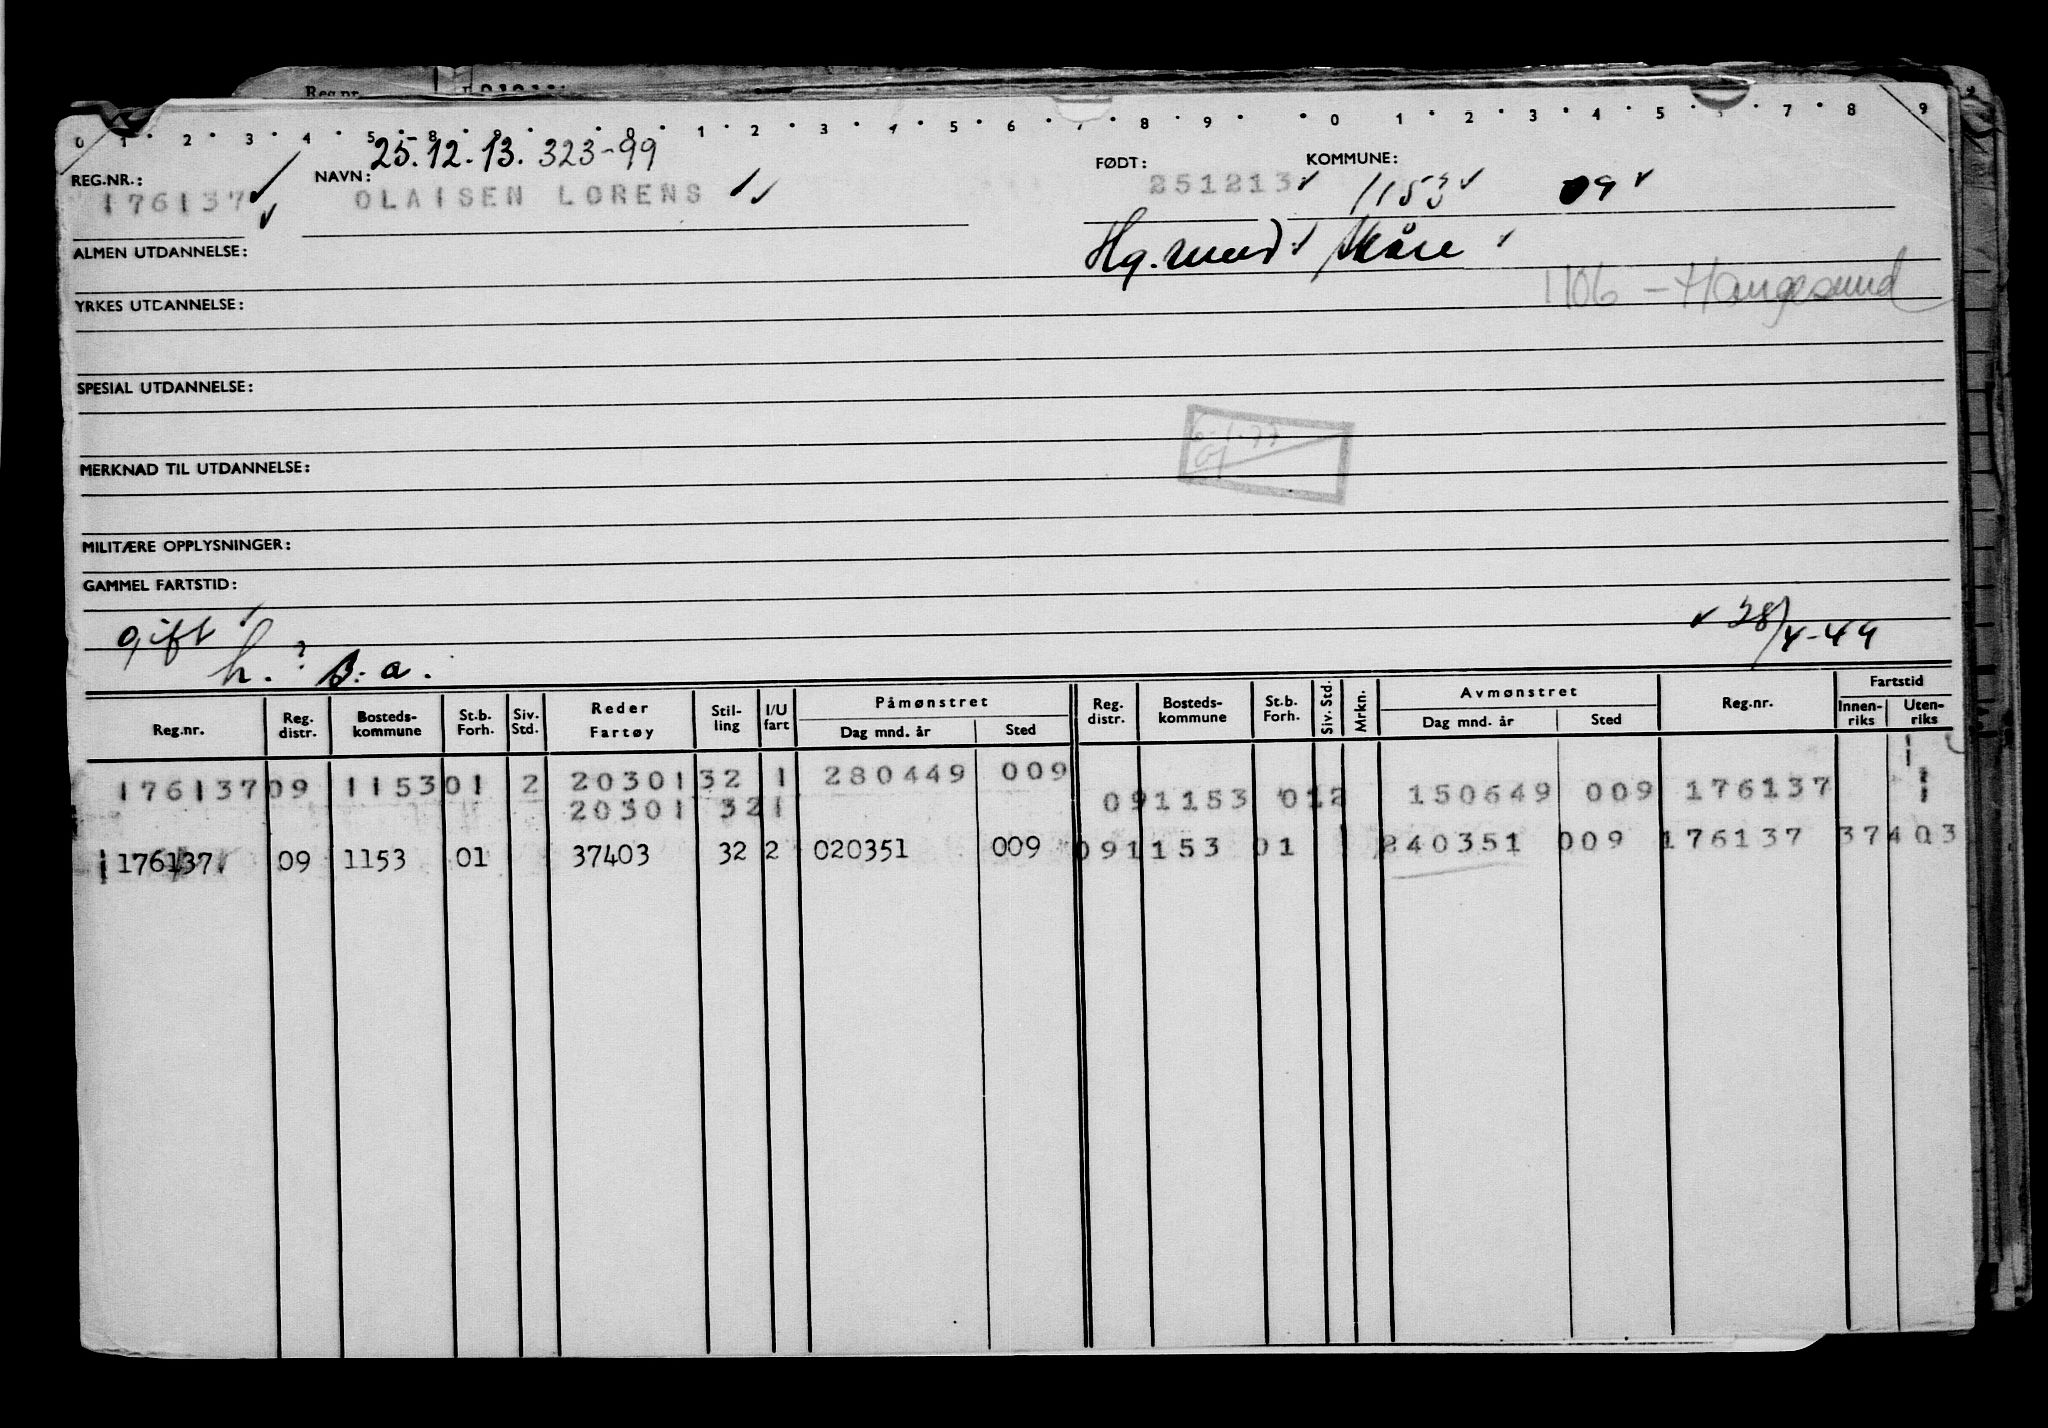 Reg.nr.
0 1 2 3 4 5 8 9 8 1 2 3 4 5 6 7 8 9 0 1 2 3 4 5 7 8 9
25.12.13. 323-99
REG.NR.: NAVN: FØDT: KOMMUNE:
176137 OLAISEN LORENS 251213 1153 09
Hg.sund Skåre
ALMEN UTDANNELSE:
1106 - Haugesund
YRKES UTDANNELSE:
SPESIAL UTDANNELSE:
MERKNAD TIL UTDANNELSE:
MILITÆRE OPPLYSNINGER:
GAMMEL FARTSTID:
gift 28/4-49
h. ? B: a.
Reg.nr. Reg. distr. Bosteds-kommune St.b. Forh. Siv. Std. Reder Fartøy Stil-ling I/U fart Påmønstret Dag mnd. år Sted Reg. distr. Bosteds-kommune St.b. Forh. Siv. Std. Mrkn. Avmønstret Dag mnd. år Sted Reg.nr. Fartstid Innen-riks Uten-riks
176137 09 1153 01 2 20301 32 1 280449 009
20301 32 1 09 1153 01 2 150649 009 176137 1
176137 09 1153 01 37403 32 2 020351 009 09 1153 01 240351 009 176137 37403